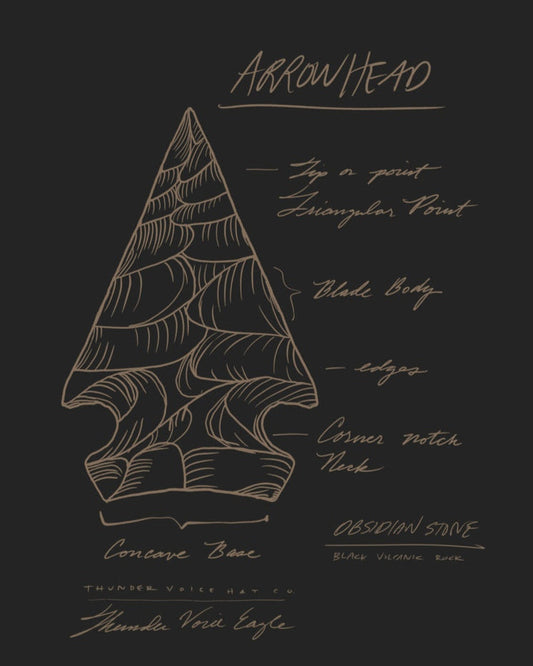 ARROWHEAD
Tip or point
Triangular Point
Blade Body
edges
Corner notch
Neck
Concave Base
OBSIDIAN STONE
BLACK VOLCANIC ROCK
THUNDER VOICE HAT CO.
Thunder Voice Eagle